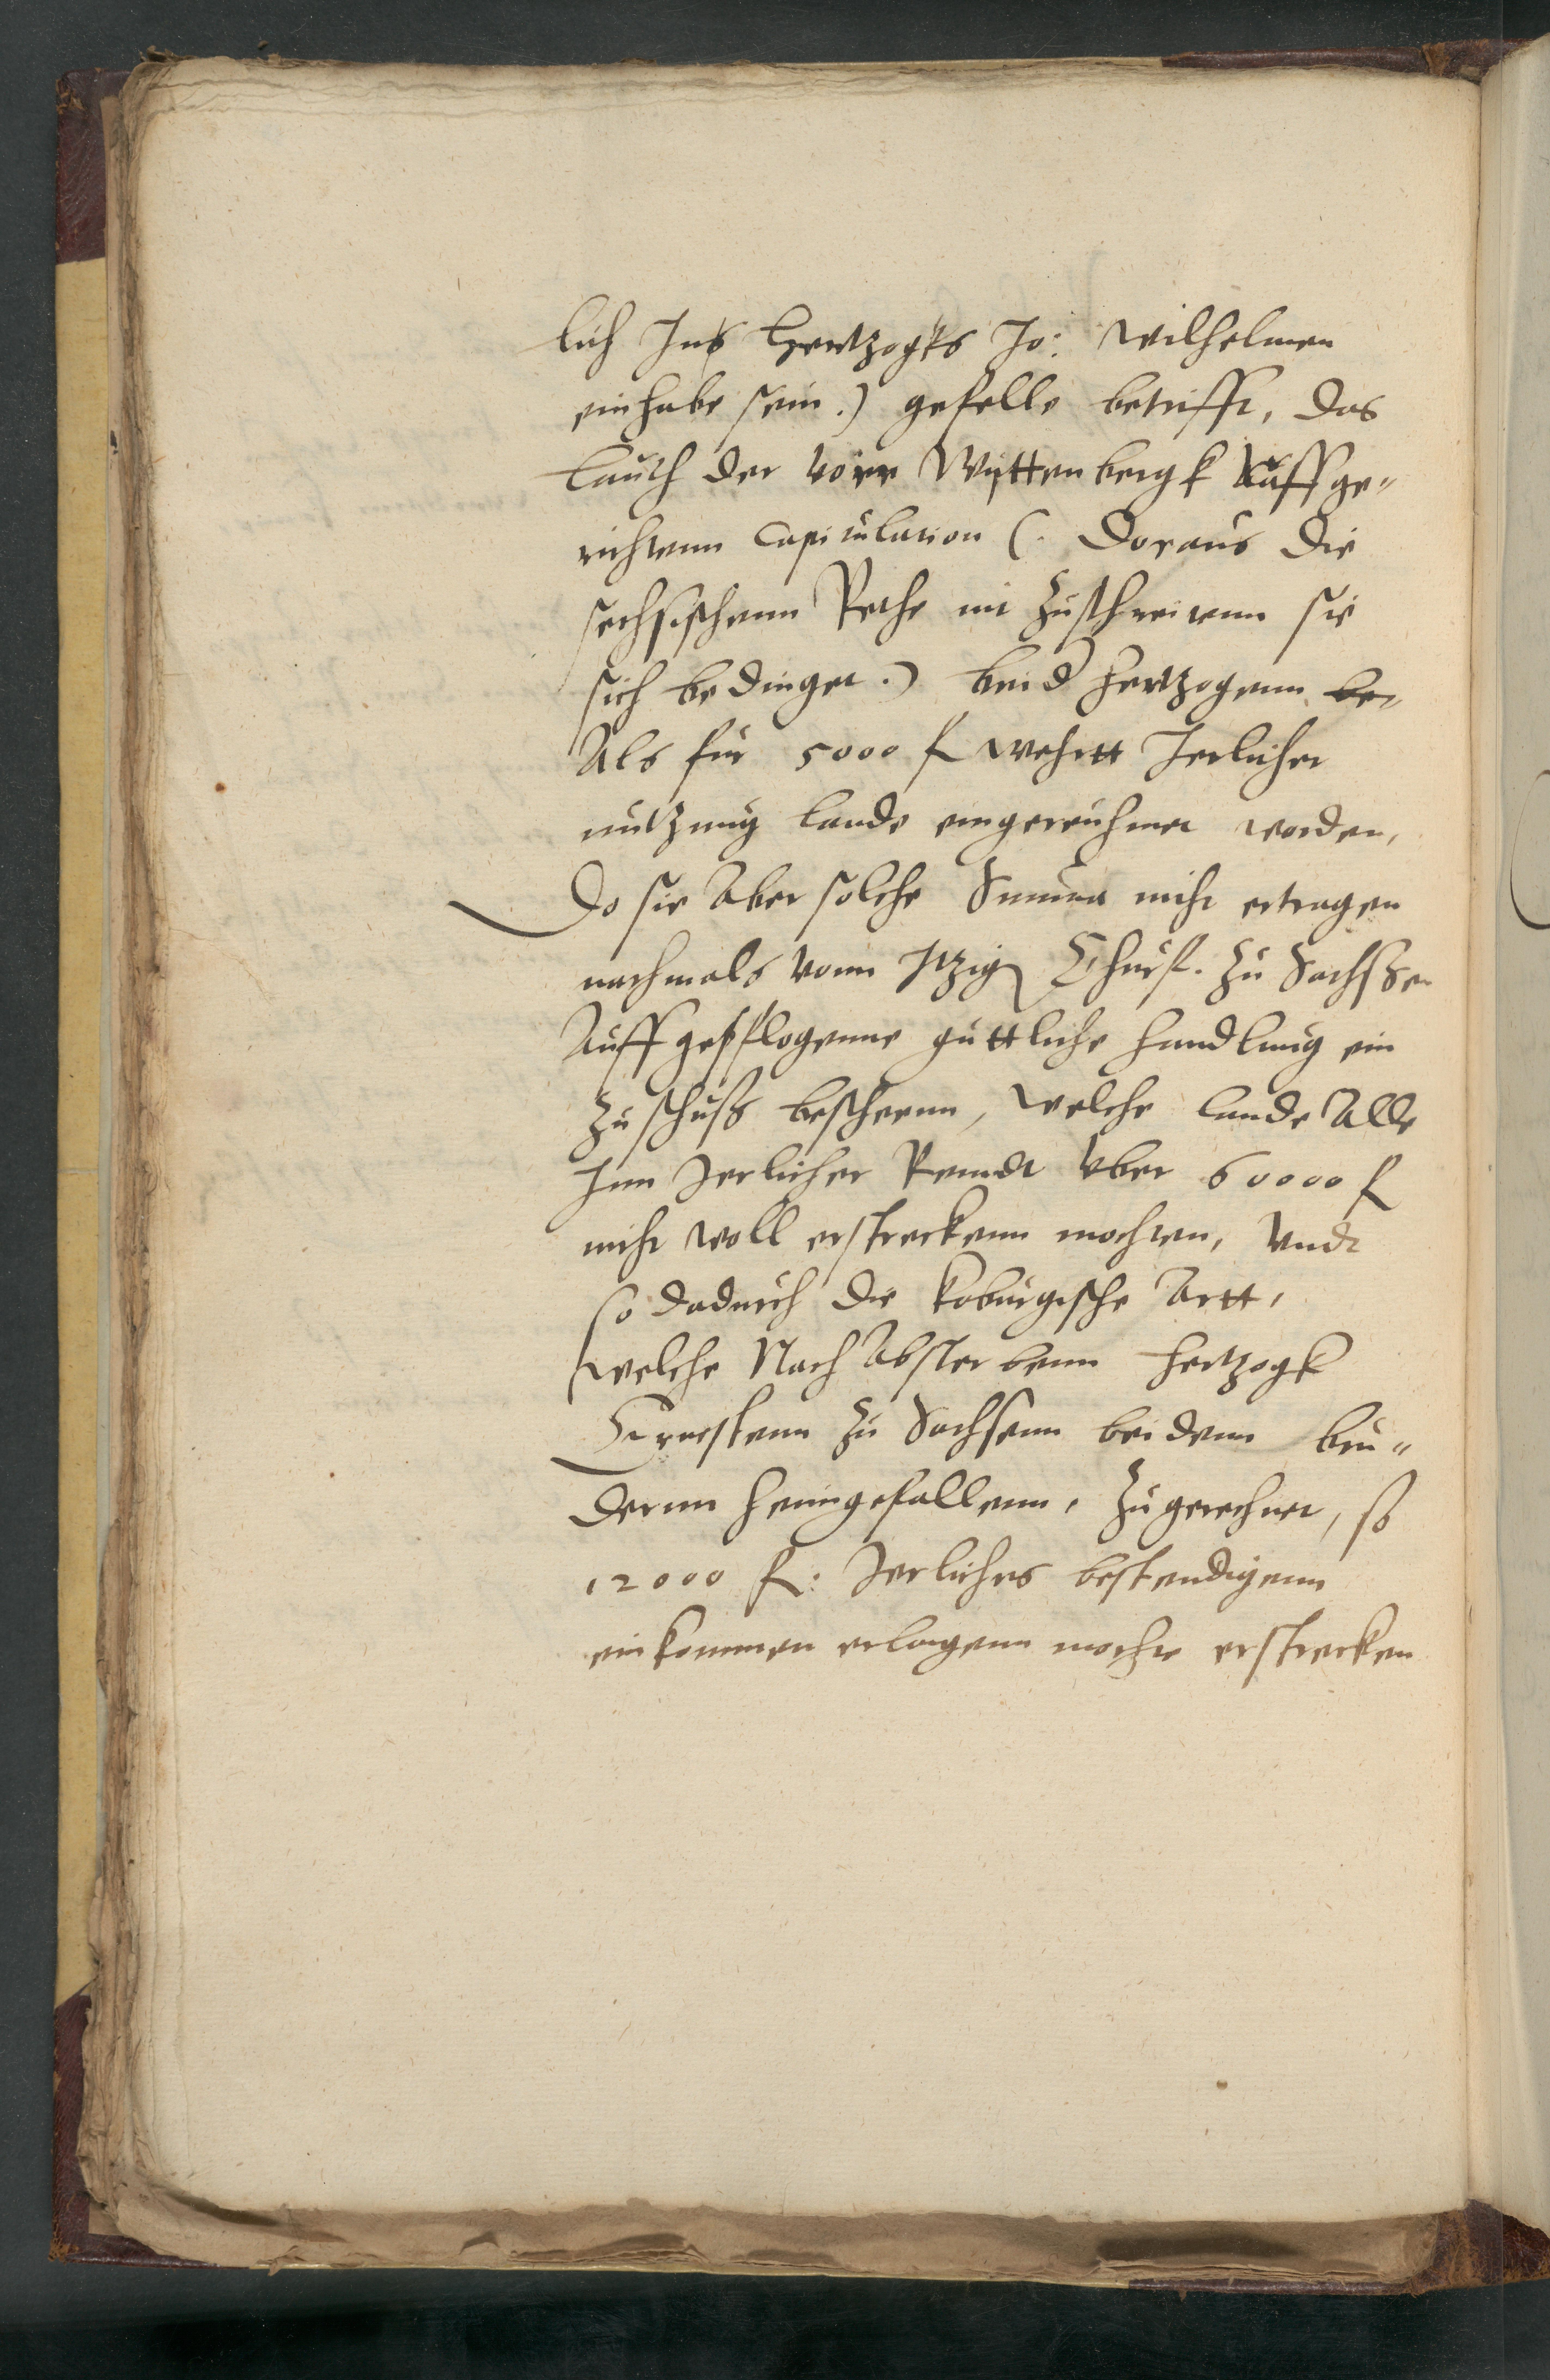 lich Ins Hertzogks Jo: Wilhelmen
einhabe sein.) gefelle betrifft, das
lauth der vorr Wyttenbergk Auffge-
richtenn Capitulation (. Doraus die
sechsischenn Rethe mit Zuschreitenn sie
sich bedinget.) beid Hertzogenn be-
Als für 5000 fl wehrtt Jerlicher
nutzung lande eingereuhmet worden,
Do sie Aber solche Summa nicht ertragen
nachmals vonn Itzig Churf. zu Sachssen
Auff gepflogenne güttliche handlung ein
Zuschuß bescheenn, welche lande Alle
Inn Jerlicher Renndt vber 60000 fl
nicht woll erstreckenn mochten, Vndt
so dadurch die koburgische Artt,
welche Nach Absterbenn Hertzogk
Ernestenn zu Sachsenn beidenn bru-
dernn heimgefallenn, Zugerechnet, so
12000 fl: Jerliches bestendigenn
einkommen erlangenn mochte erstrecken